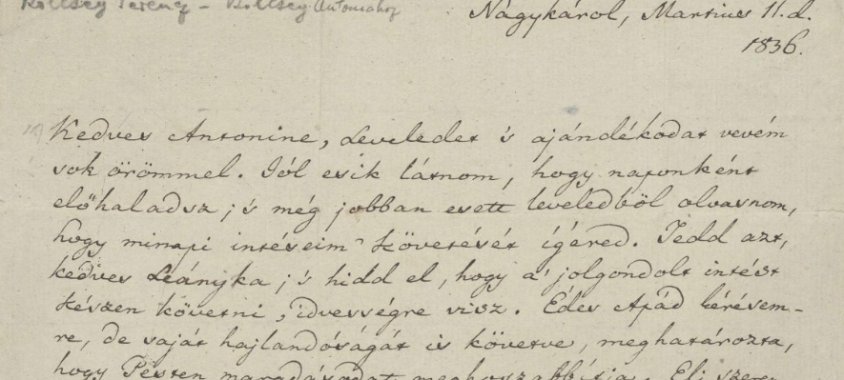 Kölcsey Ferenc – Kölcsey Antoniához
Nagykárol, Martius 11.d.
1836.
Kedves Antonine, Leveledet 's ajándékodat vevém
sok örömmel. Jól esik látnom, hogy naponként
előhaladsz; 's még jobban esett leveledből olvasnom,
hogy minapi intéseim követését ígéred. Tedd azt,
kedves Leányka; 's hidd el, hogy a' jolgondolt intést
készen követni, idvességre visz. Édes Apád kérésem-
re, de saját hajlandóságát is követve, meghatározta,
hogy Pesten maradásodat meghoszabbítja.